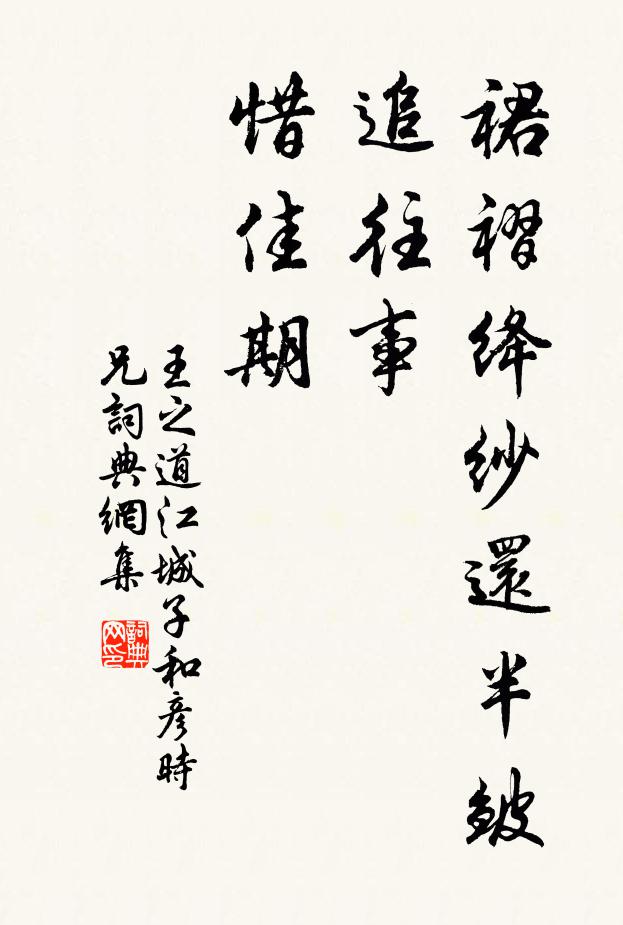 裙褶絳紗還半皴
追往事
惜佳期
王之道江城子和彥時
兄詞典網集
詞典
网印